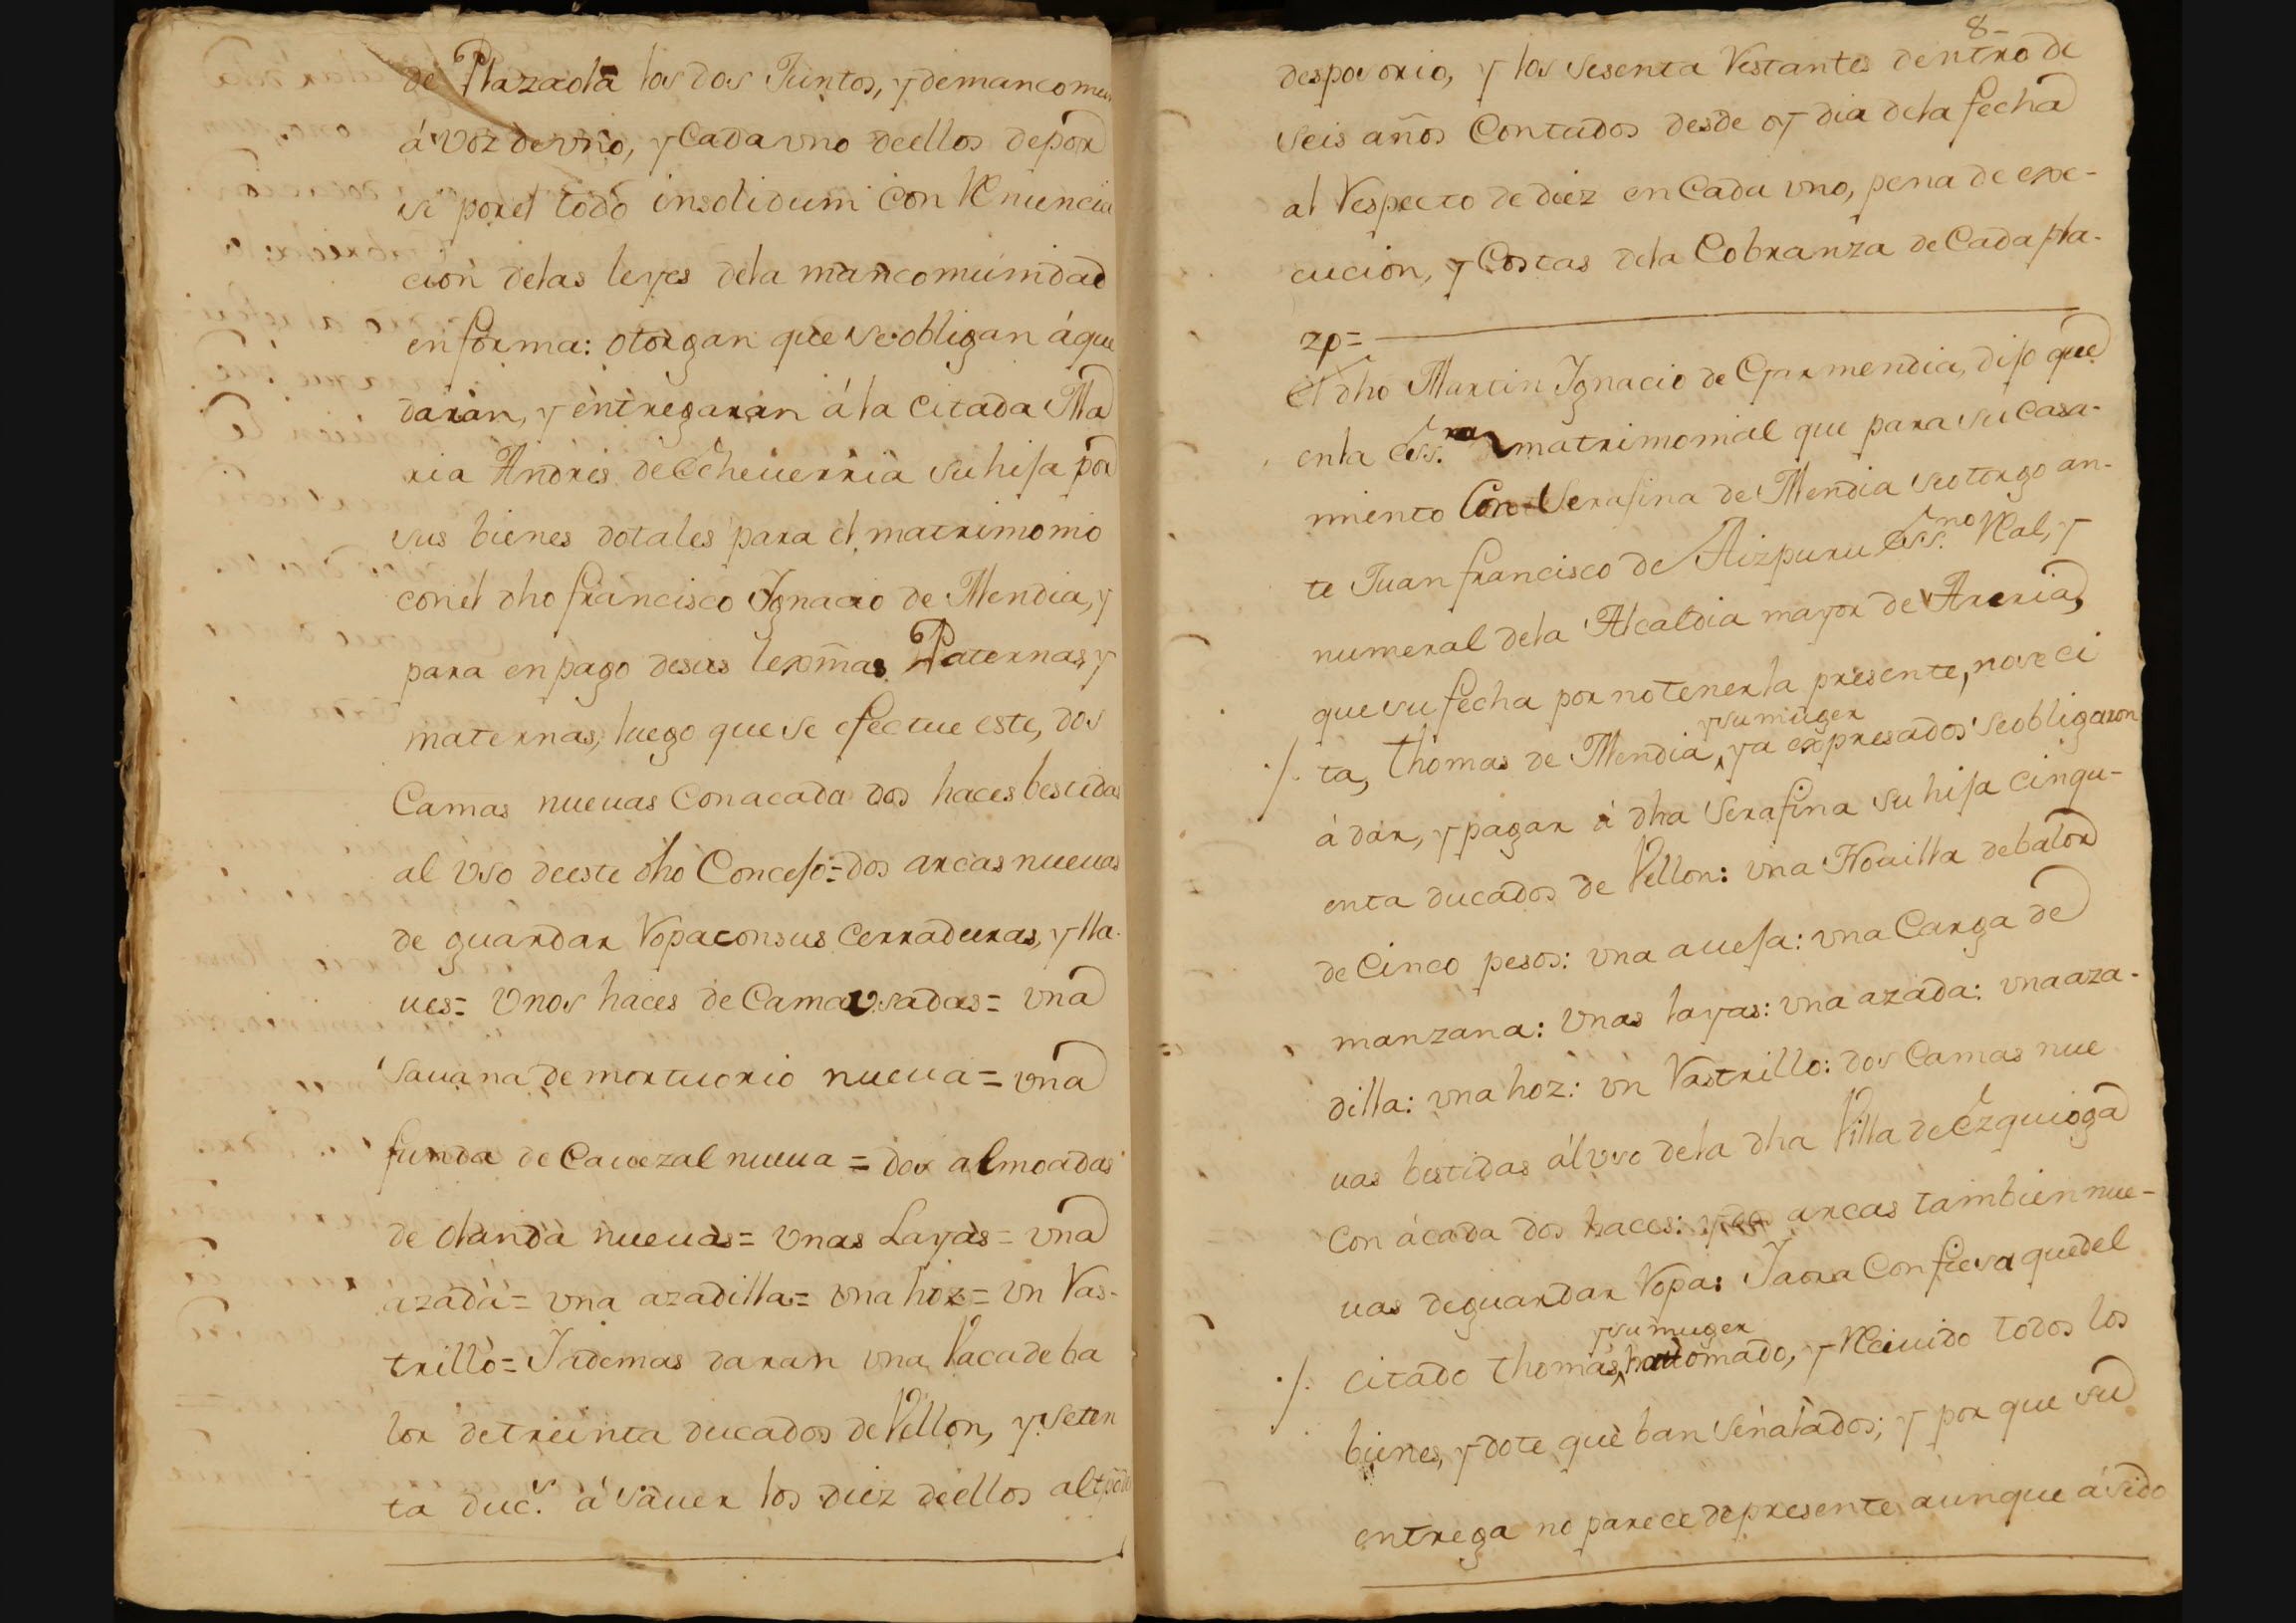 de Plazaola los dos Juntos, y demancomun
á voz de vno, y Cada vno deellos depor
si porel todo insolidum con Renuncia
cion delas leyes dela mancomunidad
enforma: otorgan que se obligan áque
daran, y entregaran á la citada Ma
ria Andres de Echeuerria su hija por
sus bienes dotales para el matrimonio
conel dho francisco Ygnacio de Mendia, y
para en pago desus lexmas Paternas, y
maternas, luego que se efectue este, dos
Camas nueuas Conacada dos haces bestidas
al vso deeste dho Concejo= dos arcas nueuas
de guardar Ropa con sus cerraduras, y lla-
ues= Vnos haces de Cama vsadas= vna
sauana de mortuorio nueua= vna
funda de Cauezal nueua= dos almoadas
de olanda nueuas= Vnas Layas= vna
azada= vna azadilla= vna hoz= vn Ras-
trillo= Jademas daran vna Vaca de ba
lor de treinta ducados de Vellon, y seten
ta duc.s á sauer los diez deellos al tpo del
8-
desposorio, y los sesenta Restantes dentro de
seis años Contados desde oy dia dela fecha
al Respecto de diez en Cada vno, pena de exe-
cucion, y Costas dela Cobranza de Cada pla-
zo=
El dho Martin Ygnacio de Garmendia, dijo que
enla ess.ra matrimonial que para su casa-
miento Con Serafina de Mendia seotorgo an-
te Juan francisco de Aizpuru ess.no Real, y
numeral dela Alcaldia mayor de Areria,
que su fecha por no tenerla presente, no se ci
y su muger
./. ta, thomas de Mendia, ya expresados se obligaron
á dar, y pagar á dha Serafina su hija cinqu-
enta ducados de Vellon: vna Nouilla debalor
de Cinco pesos: vna aueja: vna Carga de
manzana: Vnas layas: vna azada: vna aza-
dilla: vna hoz: vn Rastrillo: dos Camas nue
uas bestidas ál vso dela dha Villa de Ezquioga
Con ácada dos haces: y dos arcas tambien nue-
uas deguardar Ropa: Jaora Confiesa quedel
y su muger
./. citado thomas, ha tomado, y Reciuido todos los
bienes, y dote que ban señalados; y por que su
entrega no parece depresente aunque á sido